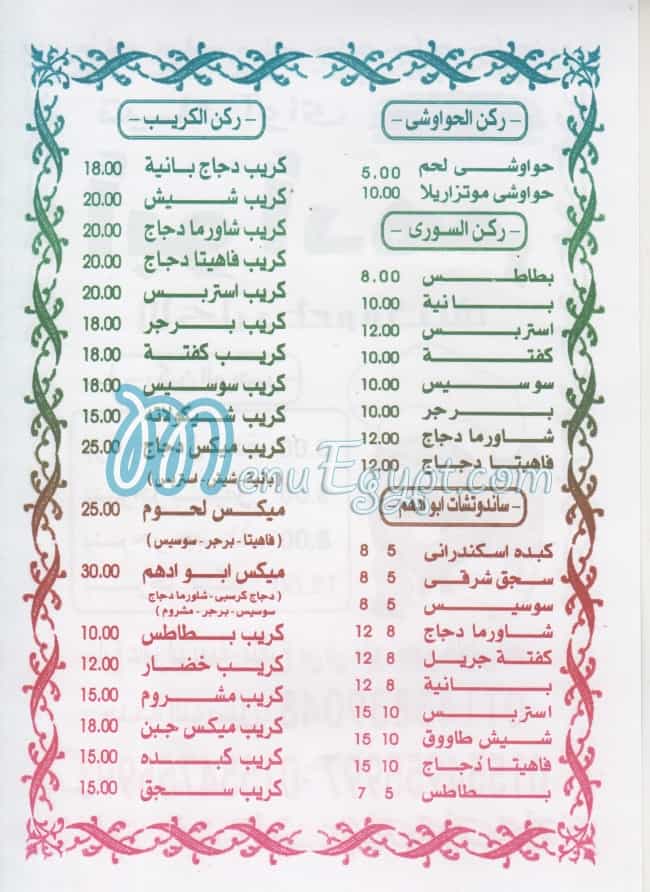 - ركن الحواوشى -
حواوشـــى لحم 5.00
حواوشى موتزاريلا 10.00
- ركن السورى -
بطاطـــس 8.00
بـــانية 10.00
استربـــس 12.00
كفتـــة 10.00
سوسيـــس 10.00
بـــرجر 10.00
شـــاورما دجاج 12.00
فاهيتـــا دجـــاج 12.00
- ساندوتشات ابو ادهم -
كبده اسكندرانى 5 8
سجق شرقى 5 8
سوسيـــس 5 8
شـــاورما دجاج 8 12
كفتـــة جريـــل 8 12
بـــانية 8 12
استربـــس 10 15
شيـــش طاووق 10 15
فاهيتـــا دجـــاج 10 15
بـــطاطس 5 7
- ركن الكريـــب -
كريب دجاج بانية 18.00
كريب شـــيش 20.00
كريب شاورما دجاج 20.00
كريب فاهيتا دجاج 20.00
كريب استربـــس 20.00
كريب بـــرجر 18.00
كريـــب كفتـــة 18.00
كريب سوسيـــس 18.00
كريب شـــيكولاته 15.00
كريب ميكس دجاج 25.00
( بانية - شيش - ستربس )
ميكـــس لحـــوم 25.00
( فاهيتا - برجر - سوسيس )
ميكس ابـــو ادهم 30.00
( دجاج كرسبى - شاورما دجاج
سوسيس - برجر - مشروم )
كريب بـــطاطس 10.00
كريـــب خضـــار 12.00
كريب مشـــروم 15.00
كريب ميكس جبن 18.00
كريب كبـــده 15.00
كريب ســـجق 15.00
MenuEgypt.com